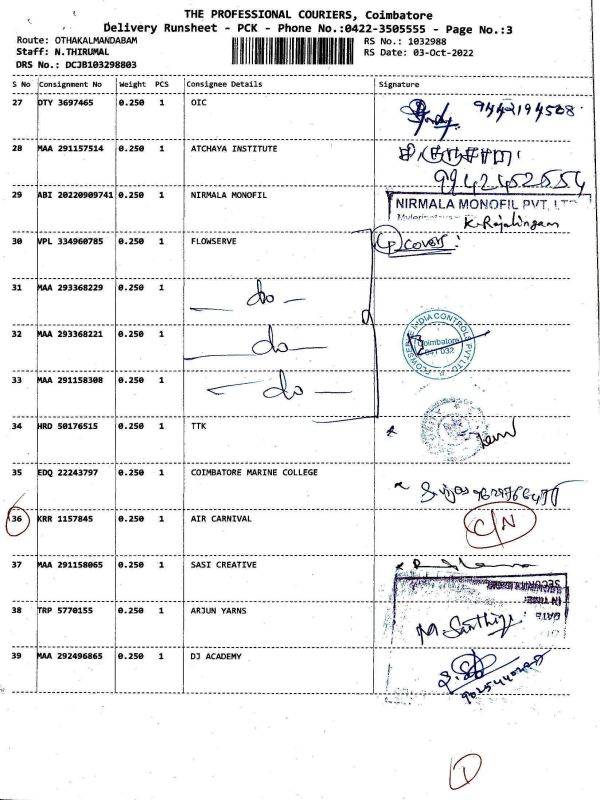 THE PROFESSIONAL COURIERS, Coimbatore
Delivery Runsheet - PCK - Phone No.:0422-3505555 - Page No.:3
Route: OTHAKALMANDABAM
RS No.: 1032988
Staff: N.THIRUMAL
RS Date: 03-Oct-2022
DRS No.: DCJB103298803
S No Consignment No Weight PCS Consignee Details Signature
27 DTY 3697465 0.250 1 OIC
28 MAA 291157514 0.250 1 ATCHAYA INSTITUTE
9942452554
29 ABI 20220909741 0.250 1 NIRMALA MONOFIL NIRMALA MONOFIL PVT. LTD
K. Rajalingam
30 VPL 334960785 0.250 1 FLOWSERVE CP covers:
31 MAA 293368229 0.250 1
do
32 MAA 293368221 0.250 1
do
FLOWSERVE INDIA CONTROLS PVT LTD.
Coimbatore
641 032
33 MAA 291158308 0.250 1
do
34 HRD 50176515 0.250 1 TTK
35 EDQ 22243797 0.250 1 COIMBATORE MARINE COLLEGE
36 KRR 1157845 0.250 1 AIR CARNIVAL C/N
37 MAA 291158065 0.250 1 SASI CREATIVE
SECURITY
IN TIME:
DATE
38 TRP 5770155 0.250 1 ARJUN YARNS
39 MAA 292496865 0.250 1 DJ ACADEMY
1